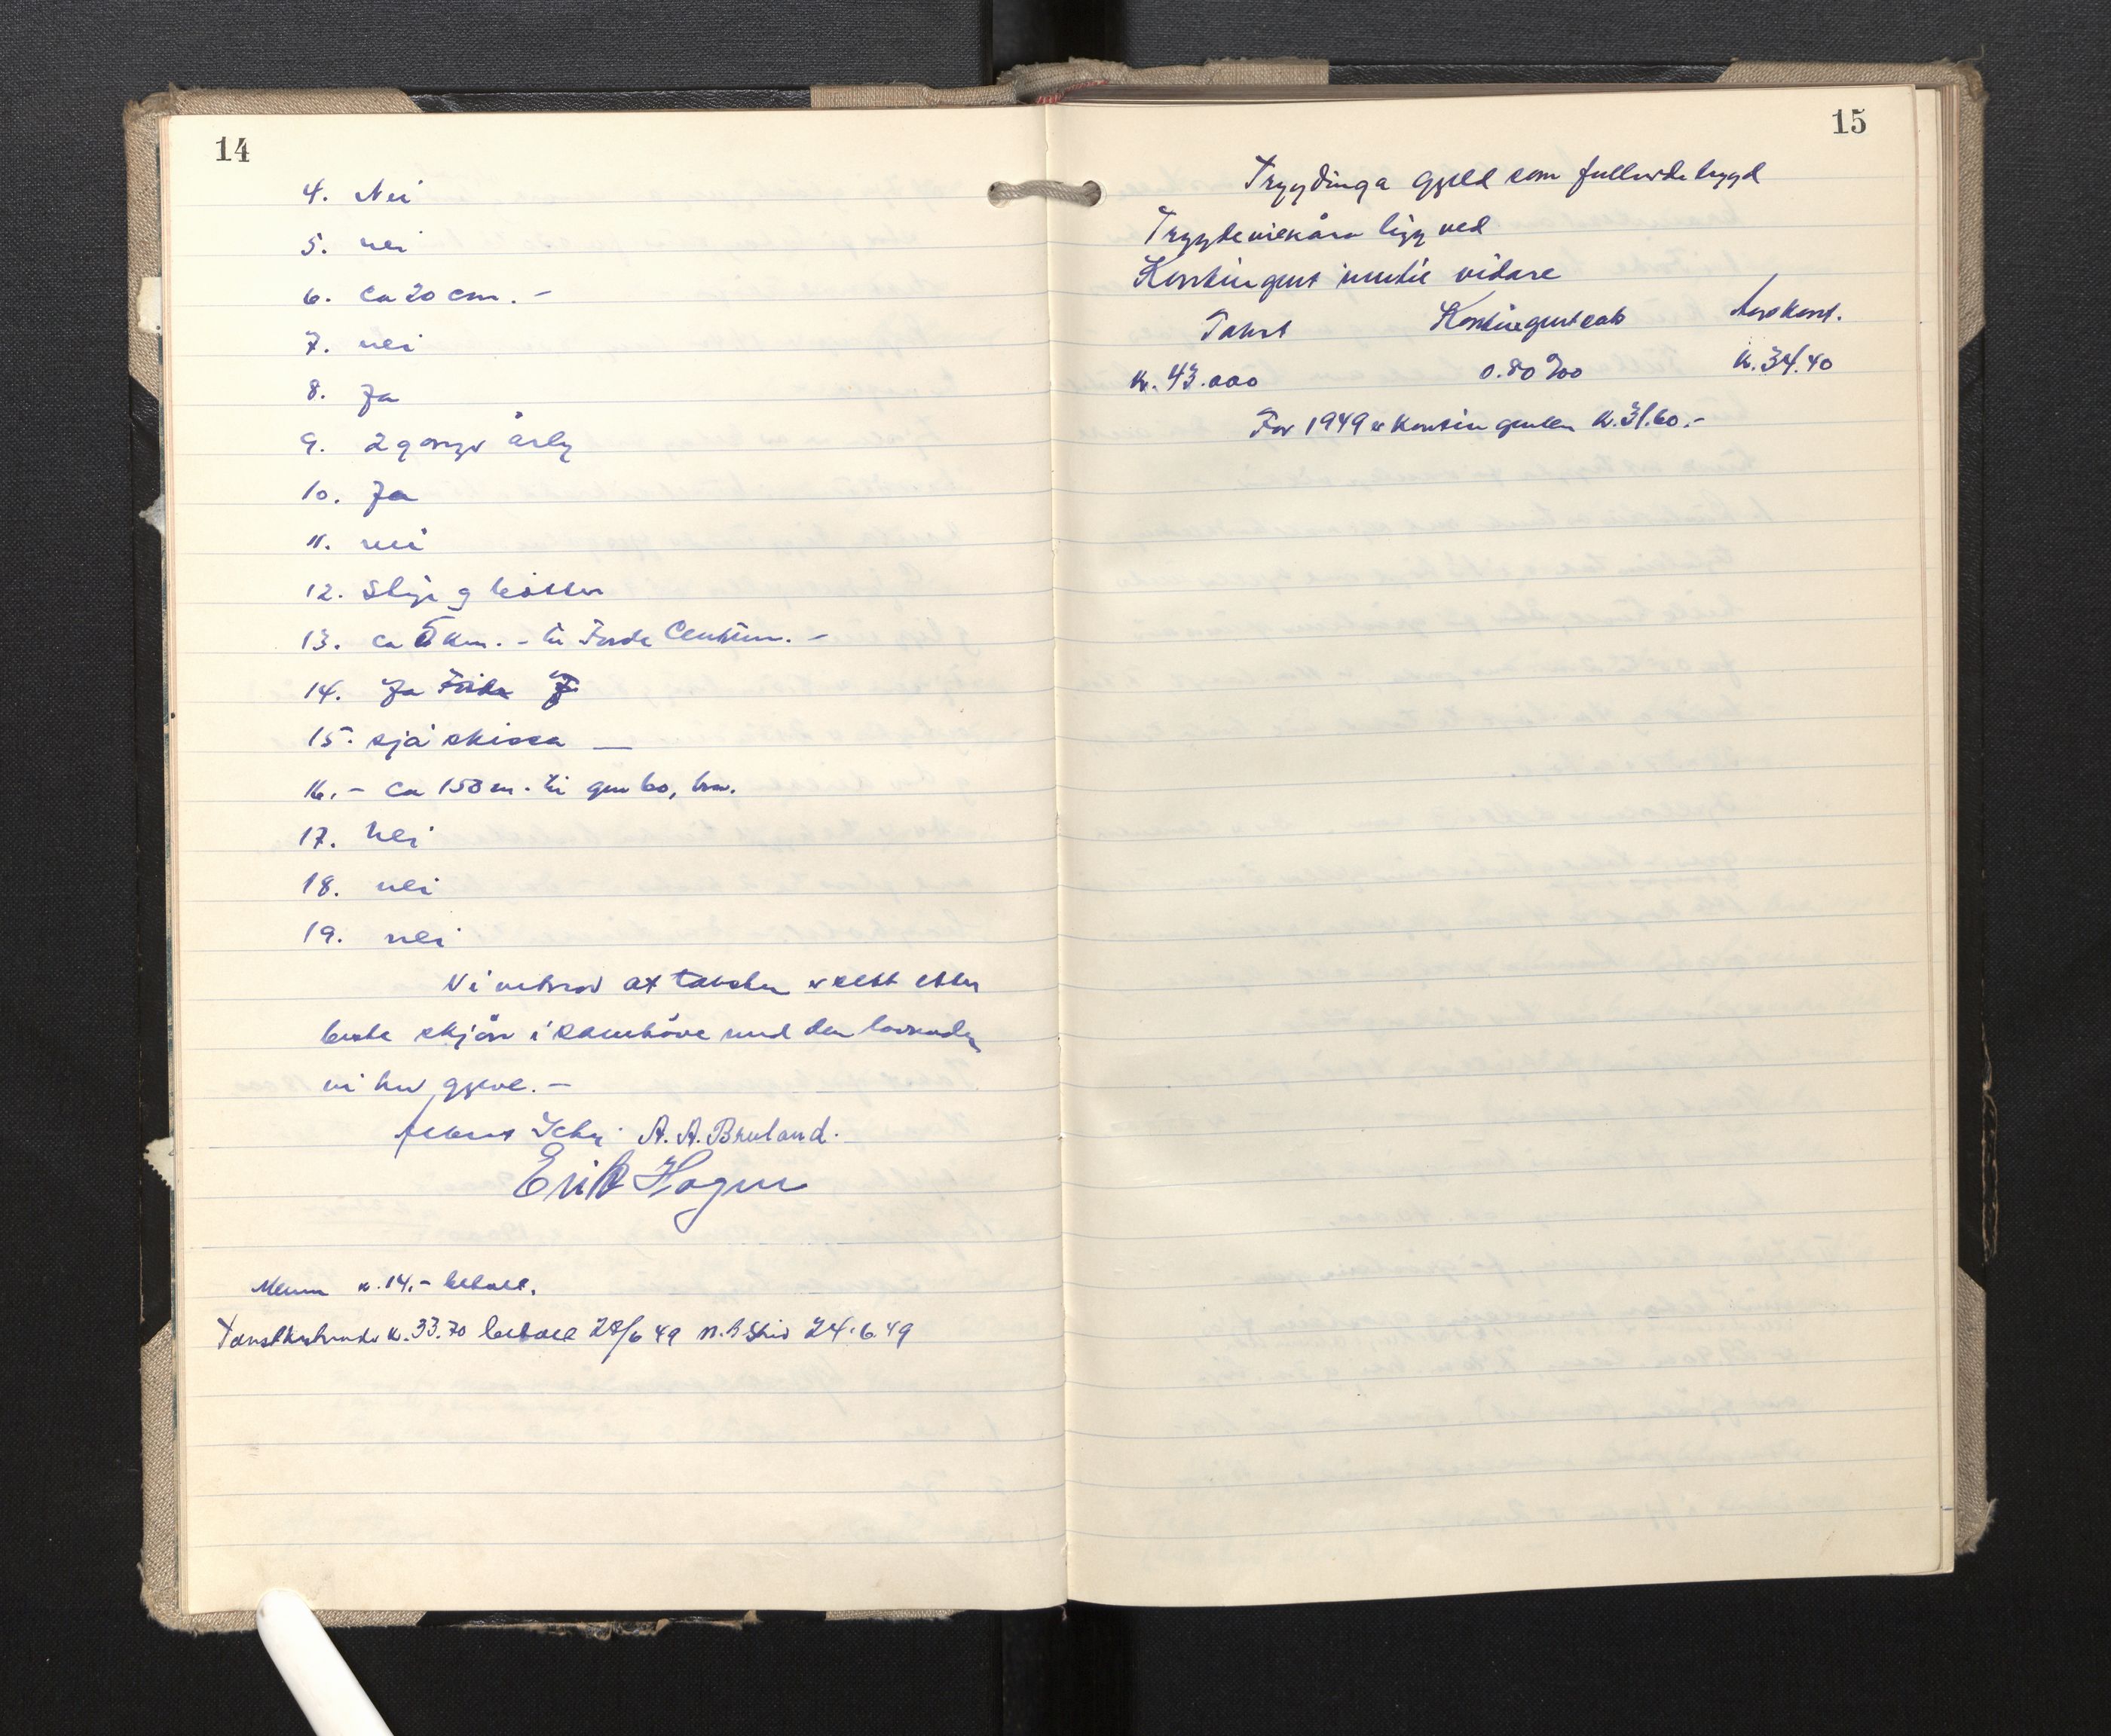 14
4. Nei
5. nei
6. ca 20 cm. -
7. nei
8. Ja
9. 2 gongr årleg
10. Ja
11. nei
12. Stige og bøtter
13. ca 5 km. - til Førde Centrum. -
14. Ja Førde
15. sjå skissa —
16. - ca 150 m. til
17. Nei
18. nei
19. nei
Vi vitnar at taksten er sett etter
beste skjøn i samhøve med den lovnaden
vi har gjeve. -
A. A. Bruland.
Erik Hagen
k. 14.- betalt.
Takstkostnader k. 33.70 betalt 28/6 49 24.6.49
15
Trygdinga gjeld som fullverdetrygd
Trygdevilkåra ligg ved
Kontingent inntil vidare
Takst Kontingentsats Årskont.
k. 43.000 0.80 ‰ k. 34.40
For 1949 er kontingenten k. 31.60.-